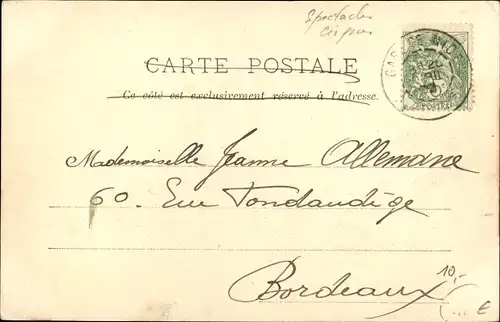 Spectacles
CARTE POSTALE
Ce côté est exclusivement réservé à l'adresse.
Mademoiselle Jeanne Allemane
60. Rue Fondaudège
Bordeaux
10,-
€